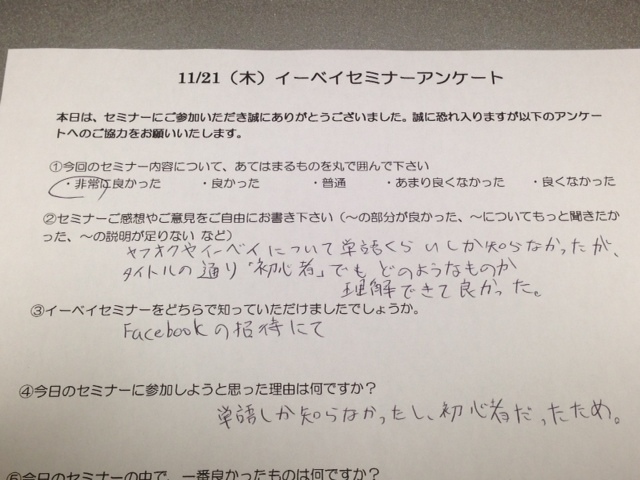 11/21（木）イーベイセミナーアンケート
本日は、セミナーにご参加いただき誠にありがとうございました。誠に恐れ入りますが以下のアンケー
トへのご協力をお願いいたします。
①今回のセミナー内容について、あてはまるものを丸で囲んで下さい
・非常に良かった ・良かった ・普通 ・あまり良くなかった ・良くなかった
②セミナーご感想やご意見をご自由にお書き下さい（～の部分が良かった、～についてもっと聞きたか
った、～の説明が足りない など）
ヤフオクやイーベイについて単語くらいしか知らなかったが、
タイトルの通り「初心者」でもどのようなものか
理解できて良かった。
③イーベイセミナーをどちらで知っていただけましたでしょうか。
Facebookの招待にて
④今日のセミナーに参加しようと思った理由は何ですか？
単語しか知らなかったし、初心者だったため。
⑤今日のセミナーの中で、一番良かったものは何ですか？